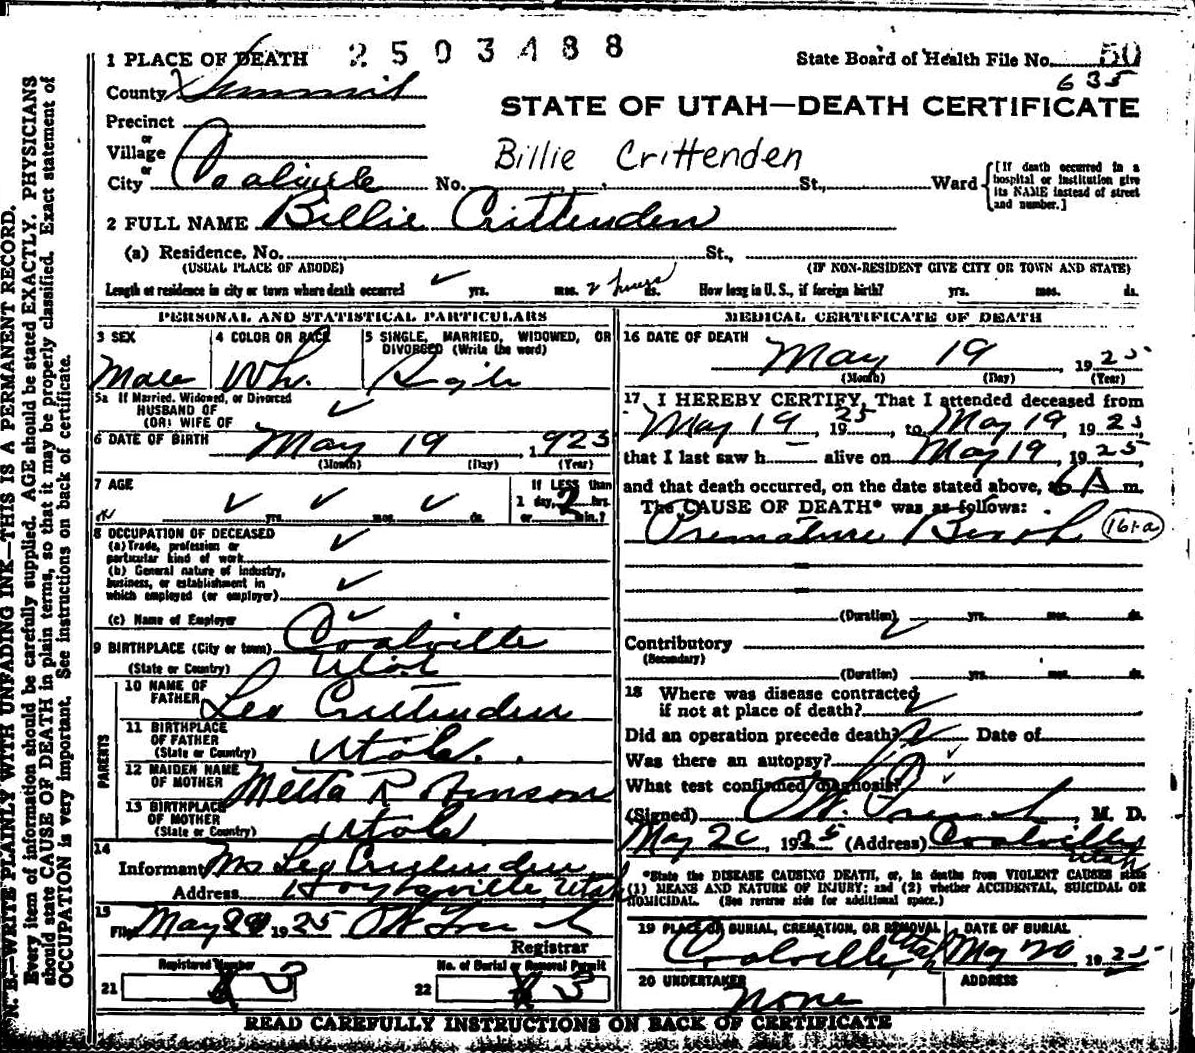 1 PLACE OF DEATH 2503488
State Board of Health File No. 50
635
County Summit
STATE OF UTAH—DEATH CERTIFICATE
Precinct
or
Village
Billie Crittenden
or
City Coalville No. St., Ward
[If death occurred in a hospital or institution give its NAME instead of street and number.]
2 FULL NAME Billie Crittenden
(a) Residence. No. St.,
(USUAL PLACE OF ABODE) (IF NON-RESIDENT GIVE CITY OR TOWN AND STATE)
Length of residence in city or town where death occurred ✓ yrs. mos. 2 hours ds. How long in U. S., if foreign birth? yrs. mos. ds.
PERSONAL AND STATISTICAL PARTICULARS
3 SEX 4 COLOR OR RACE 5 SINGLE, MARRIED, WIDOWED, OR
DIVORCED (Write the word)
Male Wh. Single
5a If Married, Widowed, or Divorced
HUSBAND OF ✓
(OR) WIFE OF
6 DATE OF BIRTH May 19, 1925
(Month) (Day) (Year)
7 AGE If LESS than
✓ yrs. ✓ mos. ✓ ds. 1 day, 2 hrs.
or min.?
8 OCCUPATION OF DECEASED
(a) Trade, profession or ✓
particular kind of work
(b) General nature of industry,
business, or establishment in ✓
which employed (or employer)
(c) Name of Employer ✓
9 BIRTHPLACE (City or town) Coalville
(State or Country) Utah
PARENTS
10 NAME OF
FATHER Leo Crittenden
11 BIRTHPLACE
OF FATHER
(State or Country) Utah.
12 MAIDEN NAME
OF MOTHER Metta Robinson
13 BIRTHPLACE
OF MOTHER
(State or Country) Utah
14
Informant Mrs Leo Crittenden
Address Hoytsville, Utah
15
Filed May 1925
Registrar
Registered Number No. of Burial or Removal Permit
21 3 22 3
MEDICAL CERTIFICATE OF DEATH
16 DATE OF DEATH
May 19, 1925
(Month) (Day) (Year)
17 I HEREBY CERTIFY, That I attended deceased from
May 19, 1925, to May 19, 1925,
that I last saw h alive on May 19, 1925,
and that death occurred, on the date stated above, at 6 A m.
The CAUSE OF DEATH* was as follows:
Premature Birth 161-a
(Duration) yrs. mos. ds.
Contributory ✓
(Secondary)
(Duration) yrs. mos. ds.
18 Where was disease contracted
if not at place of death? ✓
Did an operation precede death? Date of
Was there an autopsy? ✓
What test confirmed diagnosis? ✓
(Signed) , M. D.
May 20, 1925 (Address) Coalville
Utah
*State the DISEASE CAUSING DEATH, or, in deaths from VIOLENT CAUSES state
(1) MEANS AND NATURE OF INJURY; and (2) whether ACCIDENTAL, SUICIDAL OR
HOMICIDAL. (See reverse side for additional space.)
19 PLACE OF BURIAL, CREMATION, OR REMOVAL DATE OF BURIAL
Coalville Utah May 20, 1925
20 UNDERTAKER ADDRESS
none
READ CAREFULLY INSTRUCTIONS ON BACK OF CERTIFICATE
N. B.—WRITE PLAINLY WITH UNFADING INK—THIS IS A PERMANENT RECORD.
Every item of information should be carefully supplied. AGE should be stated EXACTLY. PHYSICIANS
should state CAUSE OF DEATH in plain terms, so that it may be properly classified. Exact statement of
OCCUPATION is very important. See instructions on back of certificate.